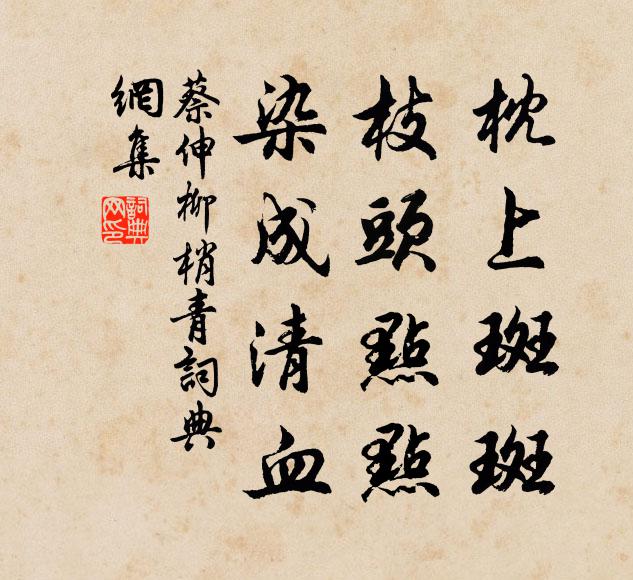 枕上斑斑
枝頭點點
染成清血
蔡伸柳梢青詞典
網集
詞典
网印